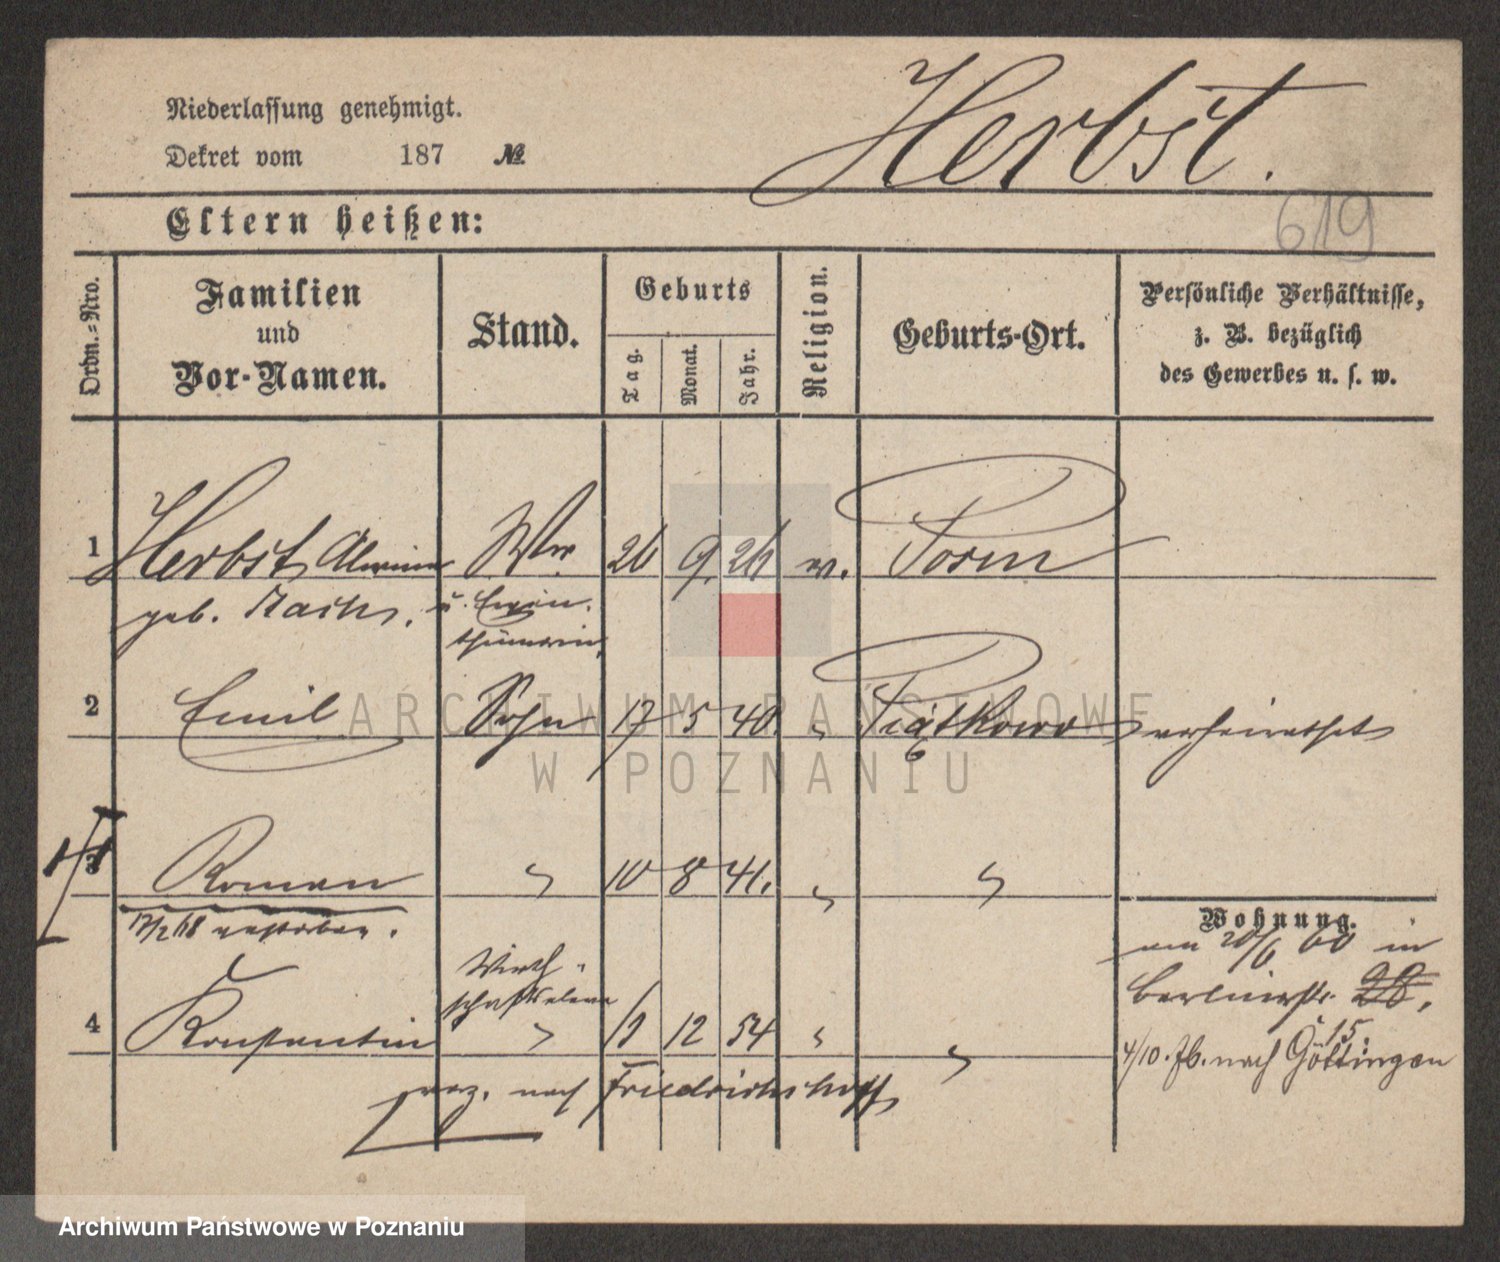 Niederlassung genehmigt.
Dekret vom 187 №
Herbst.
619
Eltern heißen:
Ordn.=Nro.
Familien
und
Vor-Namen.
Stand.
Geburts
Tag.
Monat.
Jahr.
Religion.
Geburts-Ort.
Persönliche Verhältnisse,
z. B. bezüglich
des Gewerbes u. s. w.
1 Herbst, Alwine Ww 26 9. 26 ev. Posen
geb. u. Eigen-
thümerin,
2 Emil Sohn 17 5 40 " Piątkowo verheirathet
3 Roman " 10 8 41. " "
17/2 68 verstorben.
Wohnung.
am 20/6 60 in
Wirth-
schaftseleve
Berlinerstr. 28,
15.
4 Konstantin " 1 12 54 " "
4/10. 76. nach Göttingen
verz. nach Friedrichshoff
ARCHIWUM PAŃSTWOWE
W POZNANIU
Archiwum Państwowe w Poznaniu